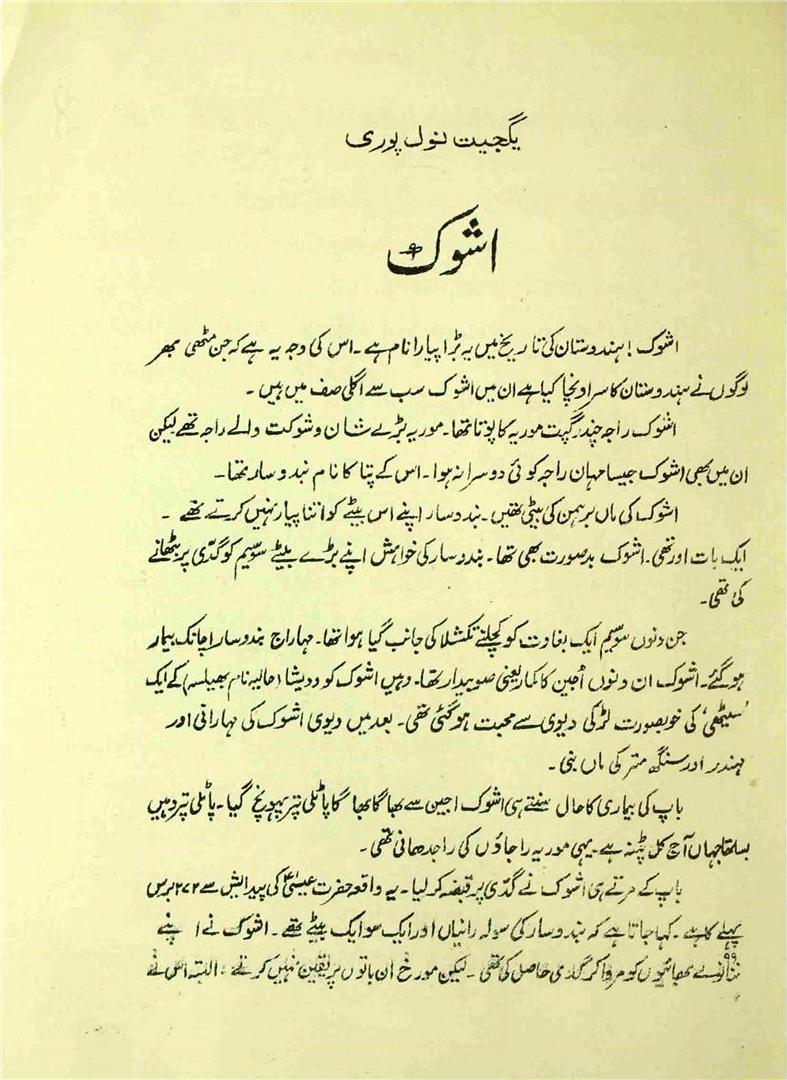 یگجیت نول پوری
اشوک
اشوک! ہندوستان کی تاریخ میں یہ بڑا پیارا نام ہے۔ اس کی وجہ یہ ہے کہ جن مٹھی بھر
لوگوں نے ہندوستان کا سر اونچا کیا ہے ان میں اشوک سب سے اگلی صف میں ہیں۔
اشوک راجہ چندر گپت موریہ کا پوتا تھا۔ موریہ بڑے شان و شوکت والے راجہ تھے لیکن
ان میں بھی اشوک جیسا مہان راجہ کوئی دوسرا نہ ہوا۔ اس کے پتا کا نام بندوسار تھا۔
اشوک کی ماں برہمن کی بیٹی تھیں۔ بندوسار اپنے اس بیٹے کو اتنا پیار نہیں کرتے تھے۔
ایک بات اور تھی۔ اشوک بدصورت بھی تھا۔ بندوسار کی خواہش اپنے بڑے بیٹے سوسیم کو گدّی پر بٹھانے
کی تھی۔
جن دنوں سوسیم ایک بغاوت کو کچلنے تکشلا کی جانب گیا ہوا تھا۔ مہاراج بندوسار اچانک بیمار
ہو گئے۔ اشوک ان دنوں اُجین کا کمار یعنی صوبیدار تھا۔ وہیں اشوک کو ودیشا (حالیہ نام بھیلسہ) کے ایک
'سیٹھی' کی خوبصورت لڑکی دیوی سے محبت ہو گئی تھی۔ بعد میں دیوی اشوک کی مہارانی اور
مہندر اور سنگھ متر کی ماں بنی۔
باپ کی بیماری کا حال سنتے ہی اشوک اجین سے بھاگا بھاگا پاٹلی پتر پہونچ گیا۔ پاٹلی پتر وہیں
بسا تھا جہاں آج کل پٹنہ ہے۔ یہی موریہ راجاؤں کی راجدھانی تھی۔
باپ کے مرتے ہی اشوک نے گدّی پر قبضہ کر لیا۔ یہ واقعہ حضرت عیسیٰؑ کی پیدائش سے ۲۷۲ برس
پہلے کا ہے۔ کہا جاتا ہے کہ بندوسار کی سولہ رانیاں اور ایک سو ایک بیٹے تھے۔ اشوک نے اپنے
ننانوے ۹۹ بھائیوں کو مروا کر گدی حاصل کی تھی۔ لیکن مورخ ان باتوں پر یقین نہیں کرتے۔ البتہ اس نے